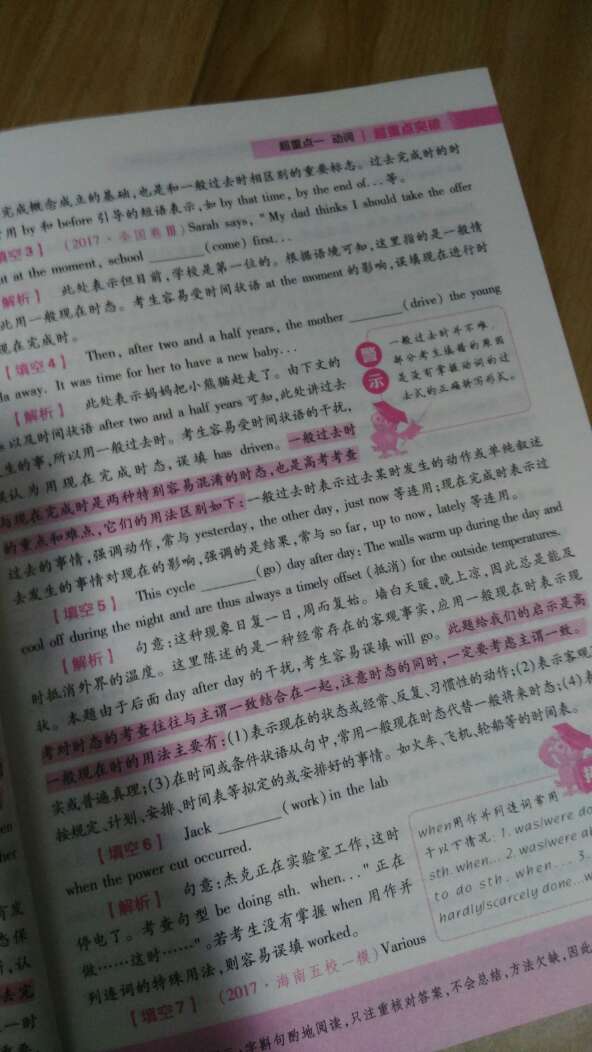 超重点一 动词 | 超重点突破
完成概念成立的基础,也是和一般过去时相区别的重要标志。过去完成时的时
用 by 和 before 引导的短语表示,如 by that time, by the end of...等。
填空3】 (2017·全国卷Ⅲ) Sarah says, "My dad thinks I should take the offer
at the moment, school ________ (come) first...
解析】 此处表示但目前,学校是第一位的。根据语境可知,这里指的是一般情
此用一般现在时态。考生容易受时间状语 at the moment 的影响,误填现在进行时
现在完成时。
【填空4】 Then, after two and a half years, the mother ________ (drive) the young
da away. It was time for her to have a new baby...
【解析】 此处表示妈妈把小熊猫赶走了。由下文的
以及时间状语 after two and a half years 可知,此处讲过去
生的事,所以用一般过去时。考生容易受时间状语的干扰,
认为用现在完成时态,误填 has driven。一般过去时
与现在完成时是两种特别容易混淆的时态,也是高考考查
的重点和难点,它们的用法区别如下:一般过去时表示过去某时发生的动作或单纯叙述
过去的事情,强调动作,常与 yesterday, the other day, just now 等连用;现在完成时表示过
去发生的事情对现在的影响,强调的是结果,常与 so far, up to now, lately 等连用。
警示
一般过去时并不难,
部分考生强错的原因
是没有掌握动词的过
去式的正确拼写形式。
【填空5】 This cycle ________ (go) day after day: The walls warm up during the day and
cool off during the night and are thus always a timely offset (抵消) for the outside temperatures.
【解析】 句意:这种现象日复一日,周而复始。墙白天暖,晚上凉,因此总是能及
时抵消外界的温度。这里陈述的是一种经常存在的客观事实,应用一般现在时表示现
状。本题由于后面 day after day 的干扰,考生容易误填 will go。此题给我们的启示是高
考对时态的考查往往与主谓一致结合在一起,注意时态的同时,一定要考虑主谓一致。
一般现在时的用法主要有:(1)表示现在的状态或经常、反复、习惯性的动作;(2)表示客观
实或普遍真理;(3)在时间或条件状语从句中,常用一般现在时态代替一般将来时态;(4)表
按规定、计划、安排、时间表等拟定的或安排好的事情。如火车、飞机、轮船等的时间表。
【填空6】 Jack ________ (work) in the lab
when the power cut occurred.
【解析】 句意:杰克正在实验室工作,这时
停电了。考查句型 be doing sth. when..." 正在
做……这时……"。若考生没有掌握 when 用作并
列连词的特殊用法,则容易误填 worked。
when用作并列连词常用
于以下情况: 1. was/were do
sth. when... 2. was/were ab
to do sth. when... 3.
hardly/scarcely done...w
【填空7】 (2017·海南五校一模) Various
字斟句酌地阅读,只注重核对答案,不会总结,方法欠缺,因此